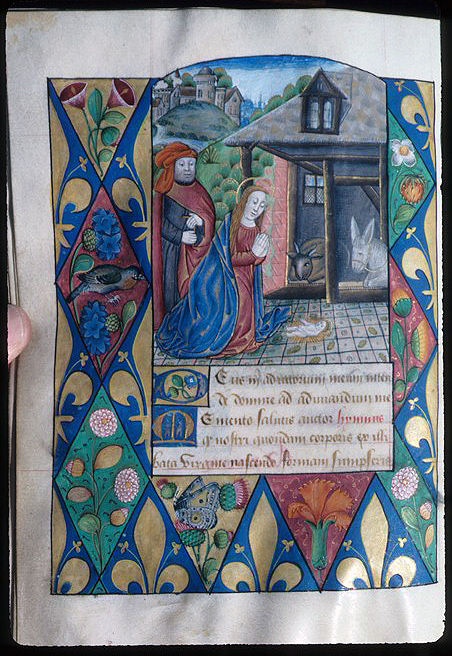 Deus in adiutorium meum inten
de domine ad adiuuandum me
Memento salutis auctor hymnus
q nostri quondam corporis ex illi
bata Virgine nascendo formam sumpseris